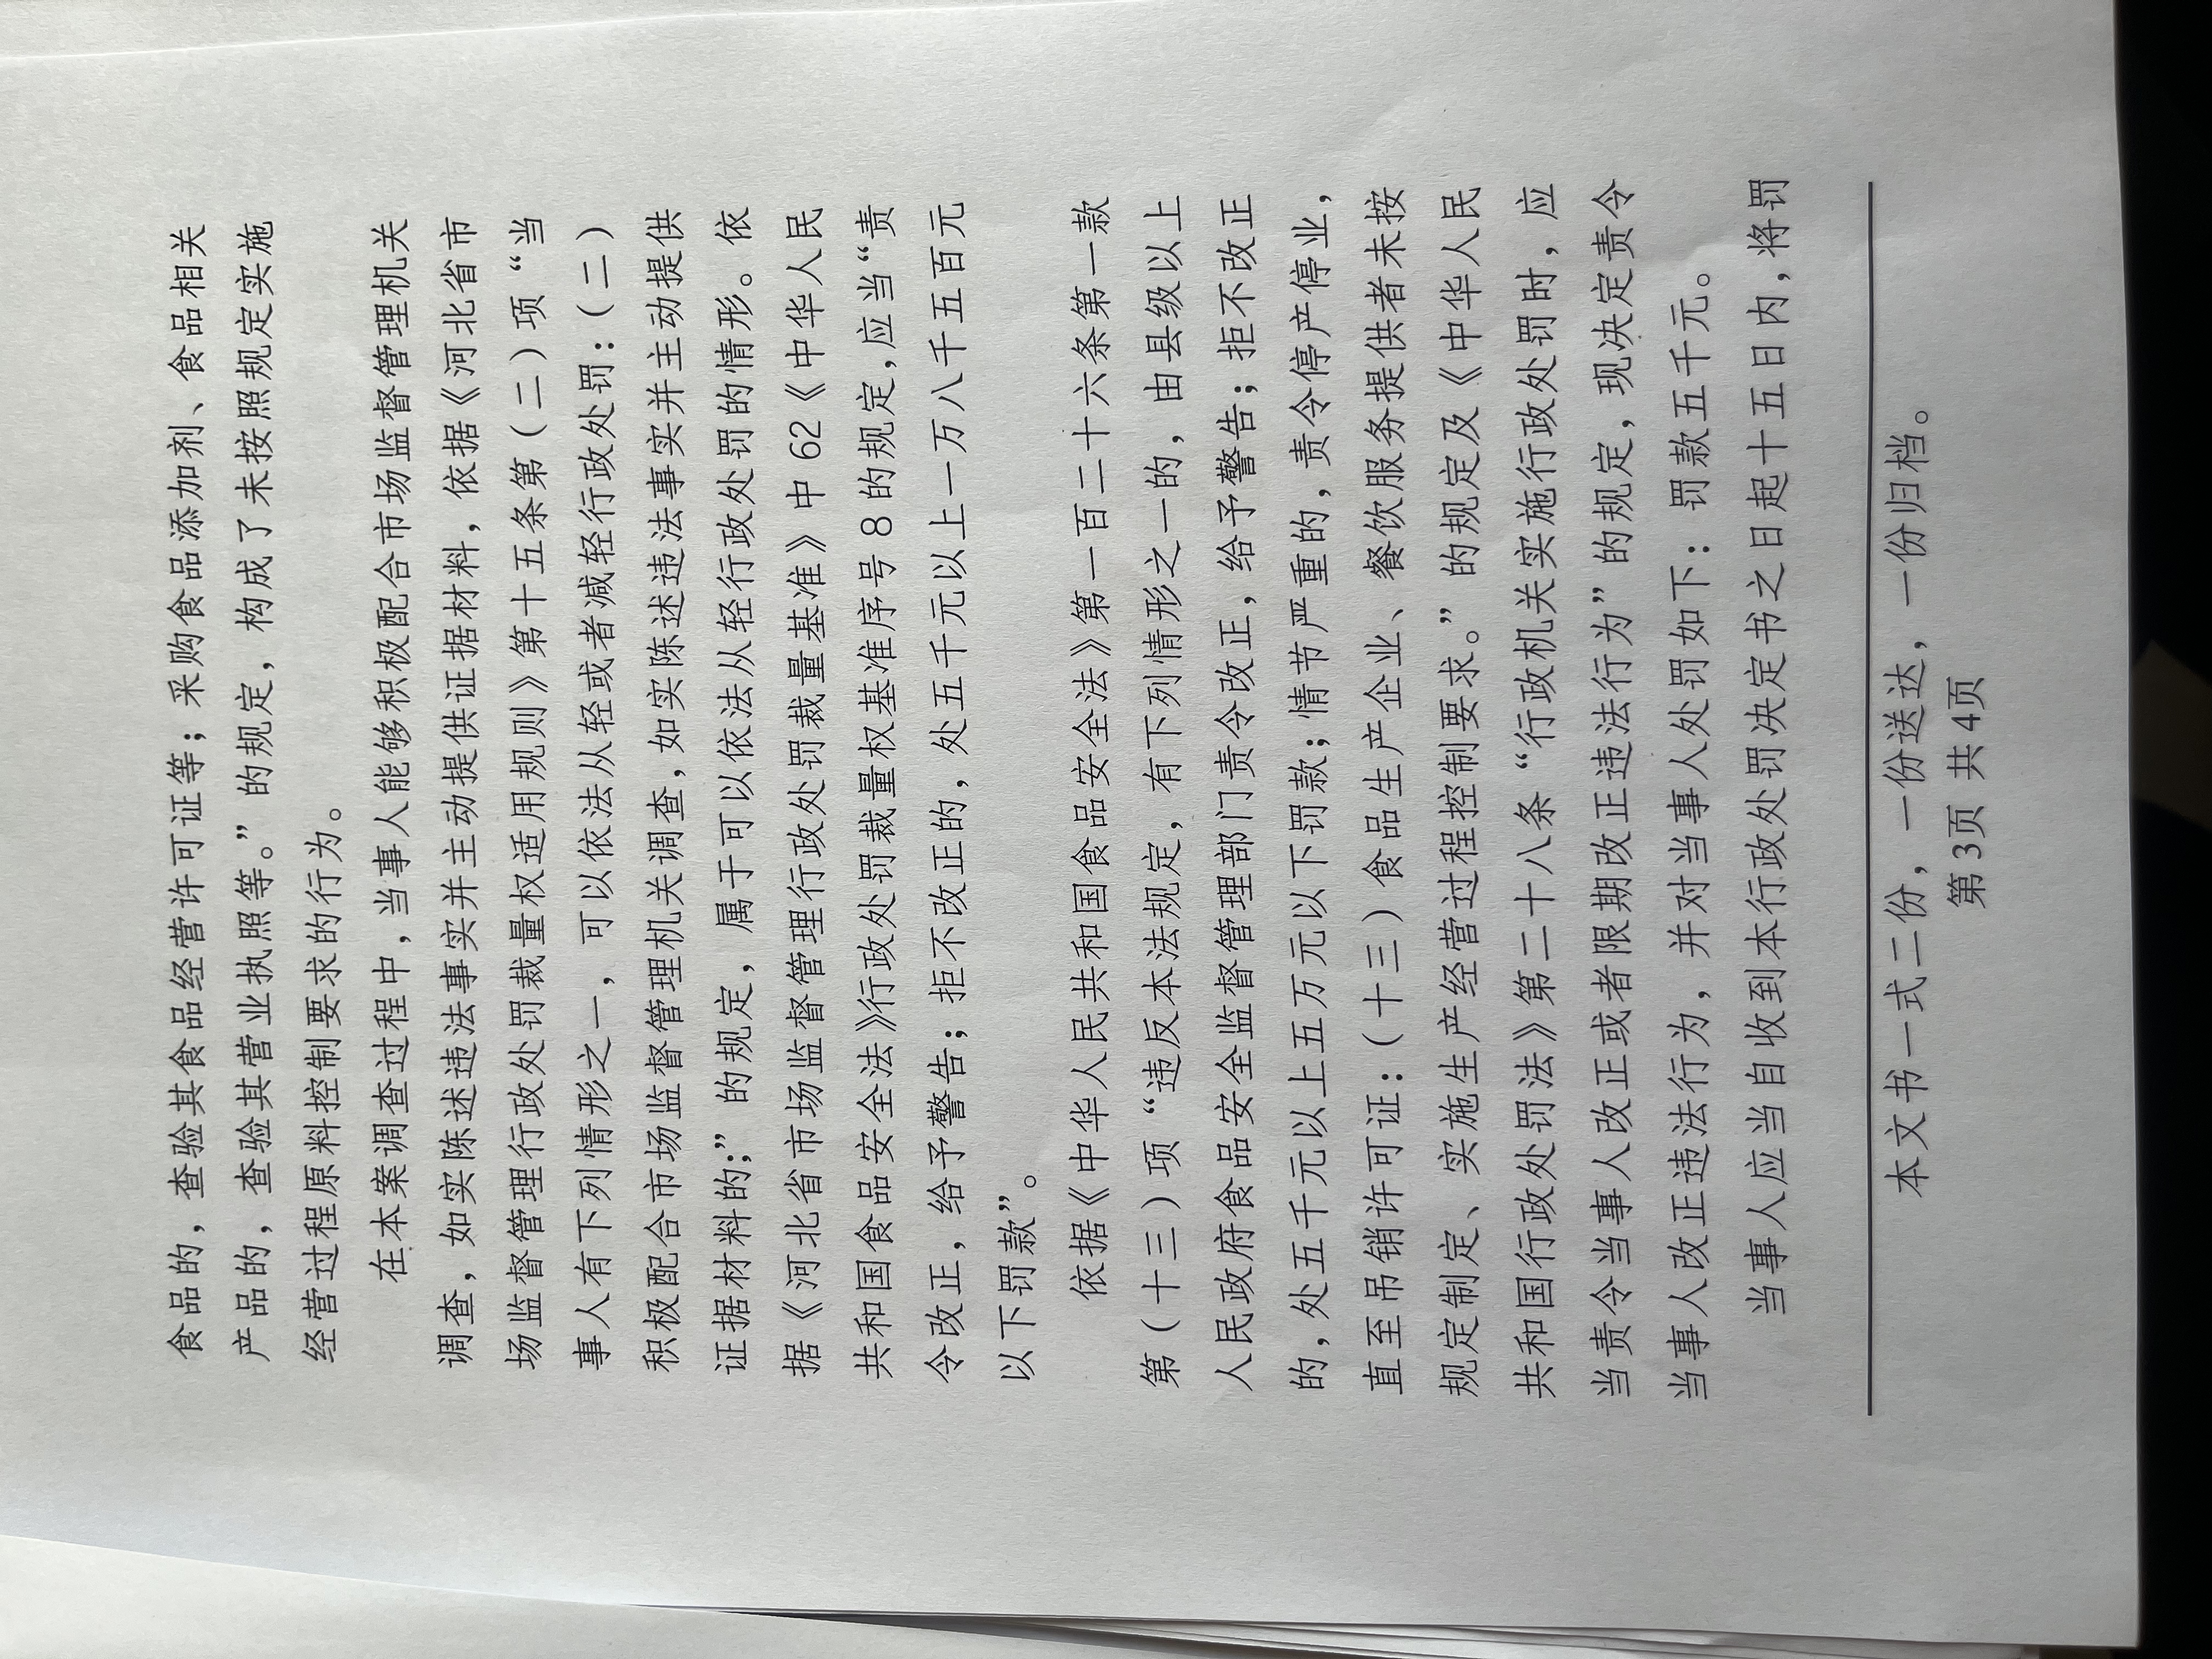 食品的，查验其食品经营许可证等；采购食品添加剂、食品相关
产品的，查验其营业执照等。”的规定，构成了未按照规定实施
经营过程原料控制要求的行为。
在本案调查过程中，当事人能够积极配合市场监督管理机关
调查，如实陈述违法事实并主动提供证据材料，依据《河北省市
场监督管理行政处罚裁量权适用规则》第十五条第（二）项“当
事人有下列情形之一，可以依法从轻或者减轻行政处罚：（二）
积极配合市场监督管理机关调查，如实陈述违法事实并主动提供
证据材料的；”的规定，属于可以依法从轻行政处罚的情形。依
据《河北省市场监督管理行政处罚裁量基准》中 62《中华人民
共和国食品安全法》行政处罚裁量权基准序号 8 的规定，应当“责
令改正，给予警告；拒不改正的，处五千元以上一万八千五百元
以下罚款”。
依据《中华人民共和国食品安全法》第一百二十六条第一款
第（十三）项“违反本法规定，有下列情形之一的，由县级以上
人民政府食品安全监督管理部门责令改正，给予警告；拒不改正
的，处五千元以上五万元以下罚款；情节严重的，责令停产停业，
直至吊销许可证：（十三）食品生产企业、餐饮服务提供者未按
规定制定、实施生产经营过程控制要求。”的规定及《中华人民
共和国行政处罚法》第二十八条“行政机关实施行政处罚时，应
当责令当事人改正或者限期改正违法行为”的规定，现决定责令
当事人改正违法行为，并对当事人处罚如下：罚款五千元。
当事人应当自收到本行政处罚决定书之日起十五日内，将罚
本文书一式二份，一份送达，一份归档。
第3页 共 4页